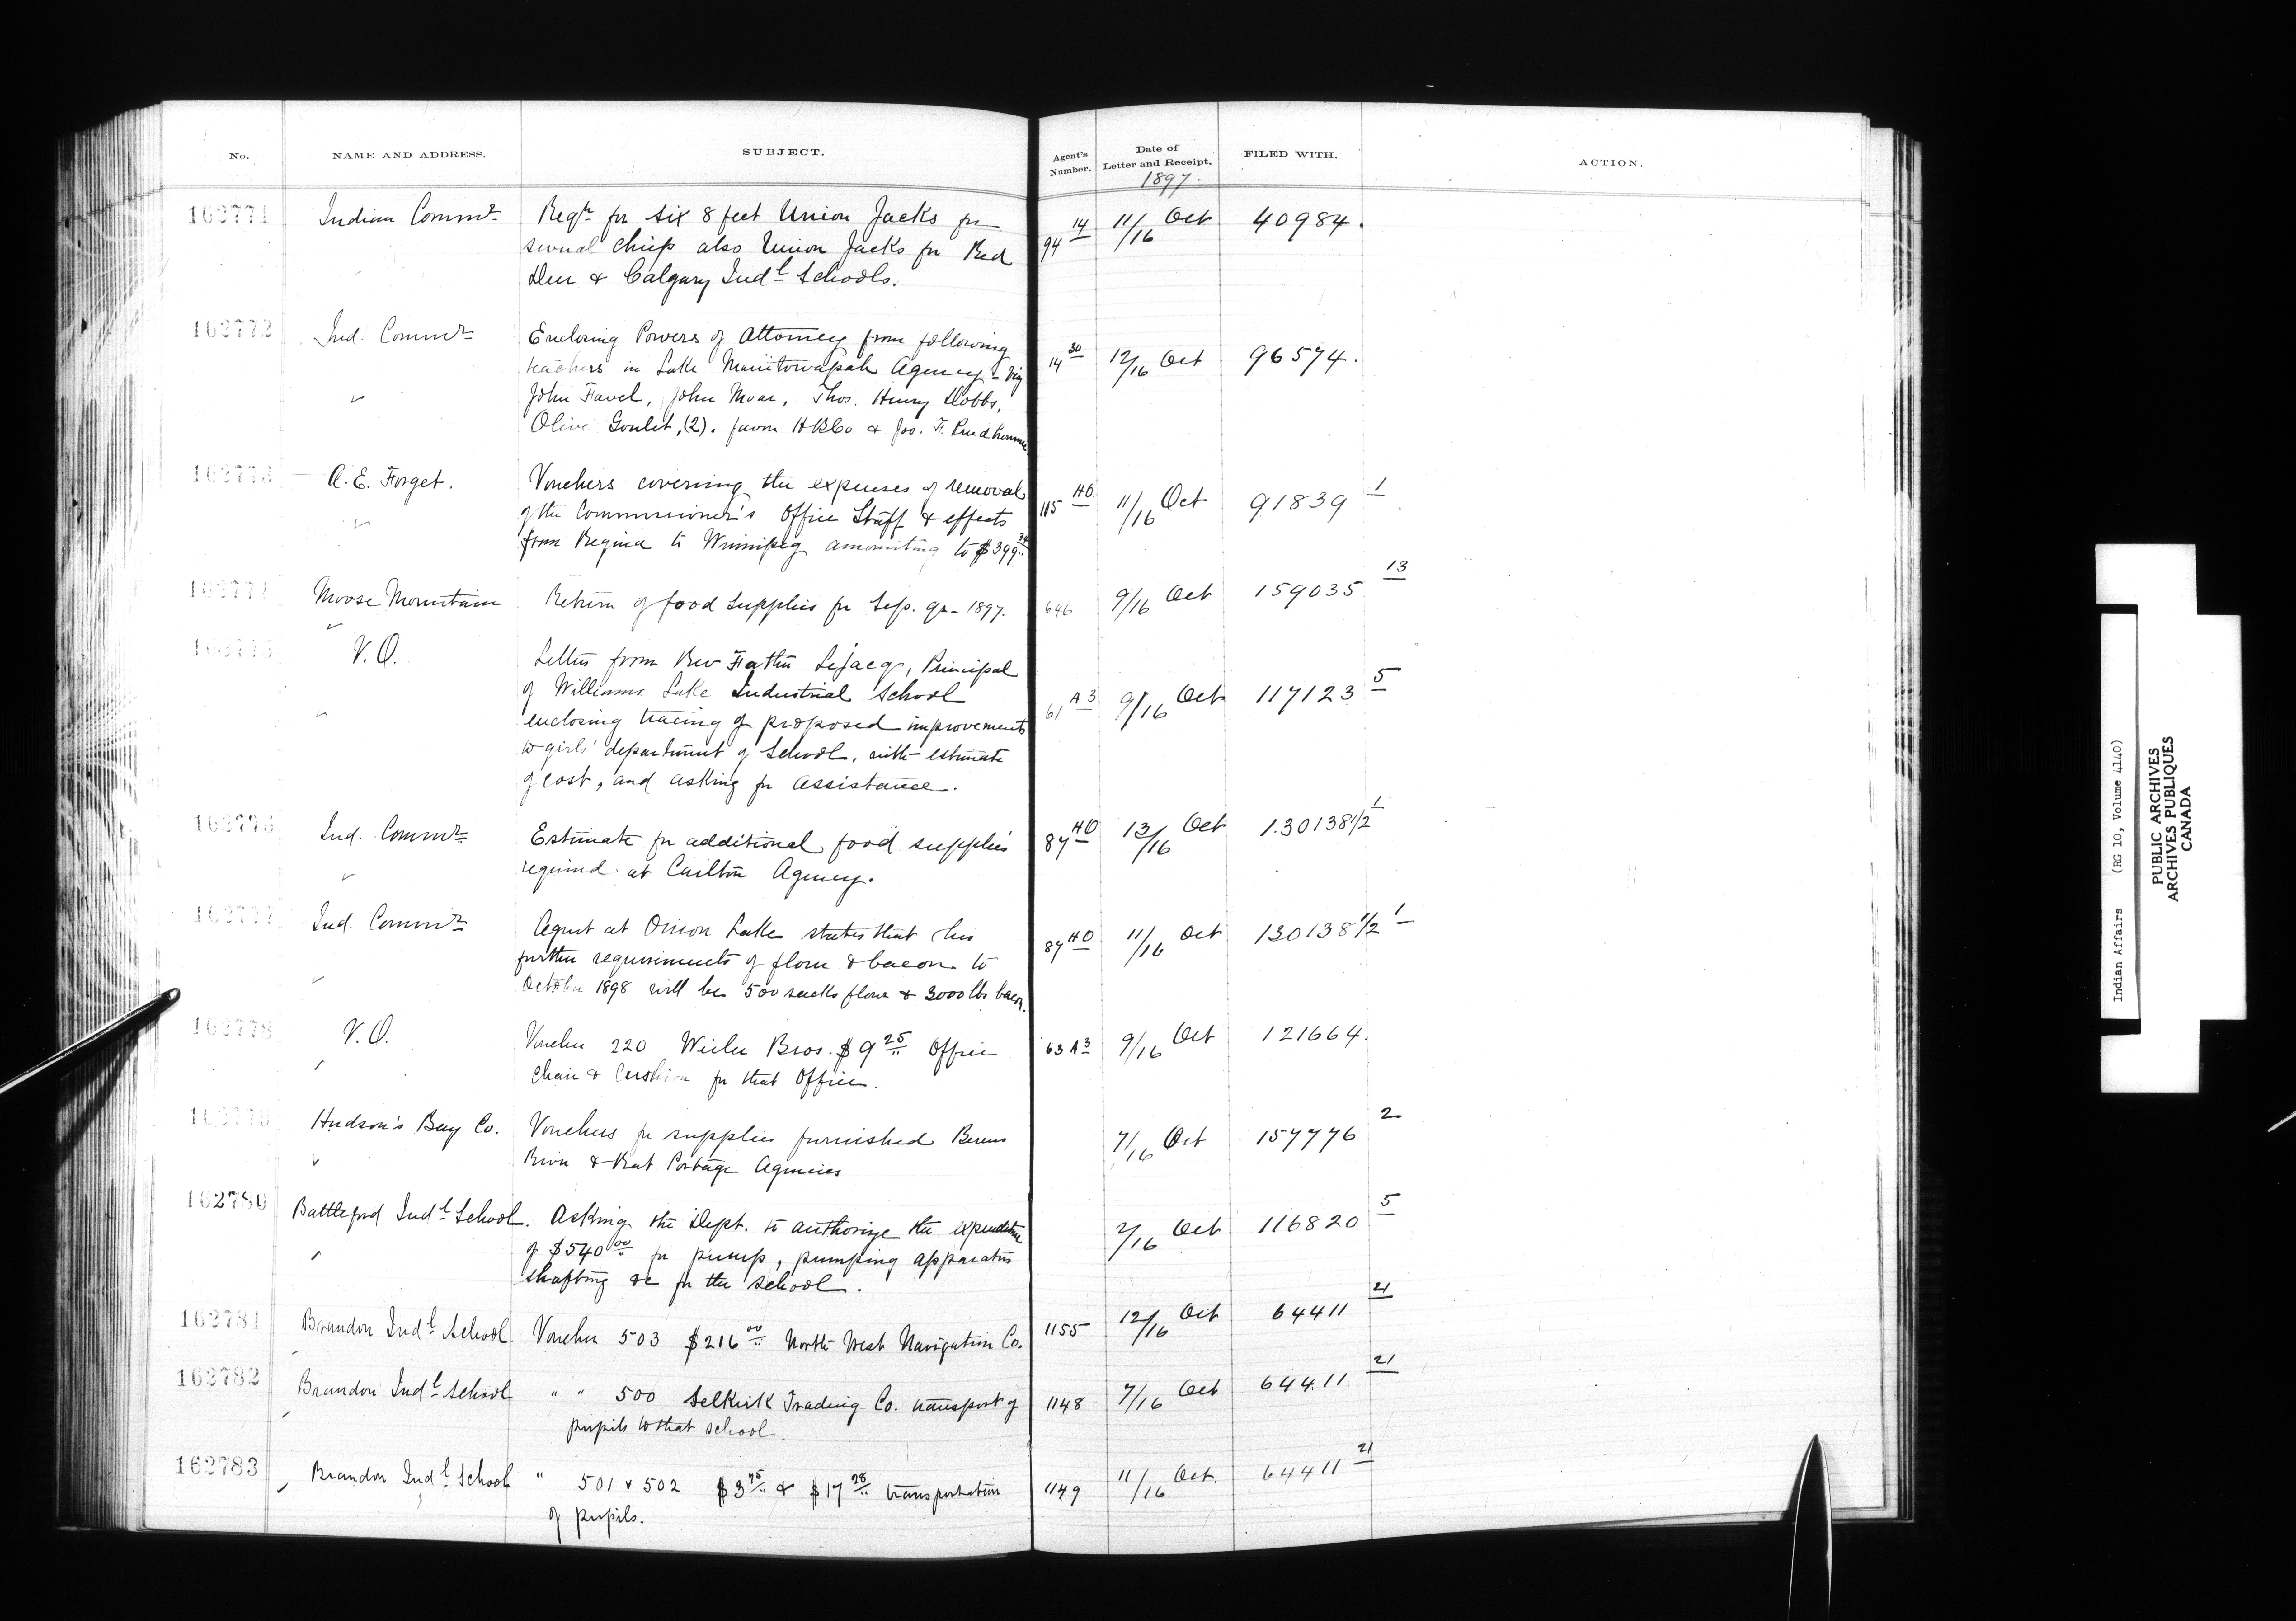 No. NAME AND ADDRESS. SUBJECT. Agent's Number. Date of Letter and Receipt. FILED WITH. ACTION.
1897.
162771 Indian Commr Reqn for six 8 feet Union Jacks for 94 14 11/16 Oct 40984.
several chiefs also Union Jacks for Red
Deer & Calgary Indl Schools.
162772 Ind. Commr Enclosing Powers of Attorney from following 14 30 12/16 Oct 96574.
teachers in Lake Manitowapah Agency - viz
John Favel, John Moar, Thos. Henry Dobbs,
Olive Goulet, (2). favor HBCo & Jos. T. Prudhomme
162773 A. E. Forget. Vouchers covering the expenses of removal 115 HO. 11/16 Oct 91839 1
of the Commissioner's Office Staff & effects
from Regina to Winnipeg amounting to $399.34
162774 Moose Mountain Return of food supplies for Sep. qr- 1897. 646 9/16 Oct 159035 13
162775 V.O. Letter from Rev Father Lejacq, Principal
of Williams Lake Industrial School 61 A 3 9/16 Oct 117123 5
enclosing tracing of proposed improvements
to girls' department of School, with estimate
of cost, and asking for assistance.
162776 Ind. Commr Estimate for additional food supplies 87 HO 13/16 Oct 130138 1/2 1
required at Carlton Agency.
162777 Ind. Commr Agent at Onion Lake states that his 87 HO 11/16 Oct 130138 1/2 1
further requirements of flour & bacon to
October 1898 will be 500 sacks flour & 3000 lbs bacon.
162778 V.O. Voucher 220 Weiler Bros. $9 25 Office 63 A 3 9/16 Oct 121664.
Chair & Cushion for that Office.
162779 Hudson's Bay Co. Vouchers for supplies furnished Berens 7/16 Oct 157776 2
River & Rat Portage Agencies
162780 Battleford Indl School. Asking the Dept. to authorize the expenditure 2/16 Oct 116820 5
of $540 00 for pump, pumping apparatus
shafting &c for the school.
162781 Brandon Indl School. Voucher 503 $216 00 North West Navigation Co. 1155 12/16 Oct 64411 21
162782 Brandon Indl School " " 500 Selkirk Trading Co. transport of 1148 7/16 Oct 64411 21
pupils to that school.
162783 Brandon Indl School " 501 & 502 $3 75 & $17 28 transportation 1149 11/16 Oct. 64411 21
of pupils.
Indian Affairs (RG 10, Volume 4140)
PUBLIC ARCHIVES
ARCHIVES PUBLIQUES
CANADA